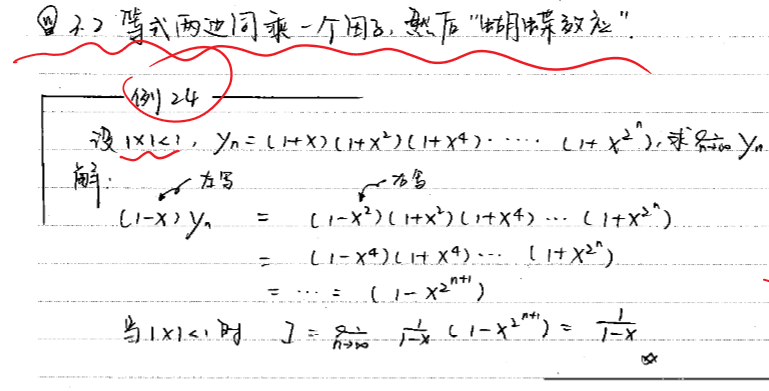 等式两边同乘一个因子,然后"蝴蝶效应".
例24
设 |x|<1, yₙ=(1+x)(1+x²)(1+x⁴)·····(1+x^{2^n}), 求 lim_{n→∞} yₙ
解:
左写 右写
(1-x) yₙ = (1-x²)(1+x²)(1+x⁴)···(1+x^{2^n})
= (1-x⁴)(1+x⁴)··· (1+x^{2^n})
= ··· = (1-x^{2^{n+1}})
当 |x|<1 时 I = lim_{n→∞} \frac{1}{1-x} (1-x^{2^{n+1}}) = \frac{1}{1-x}